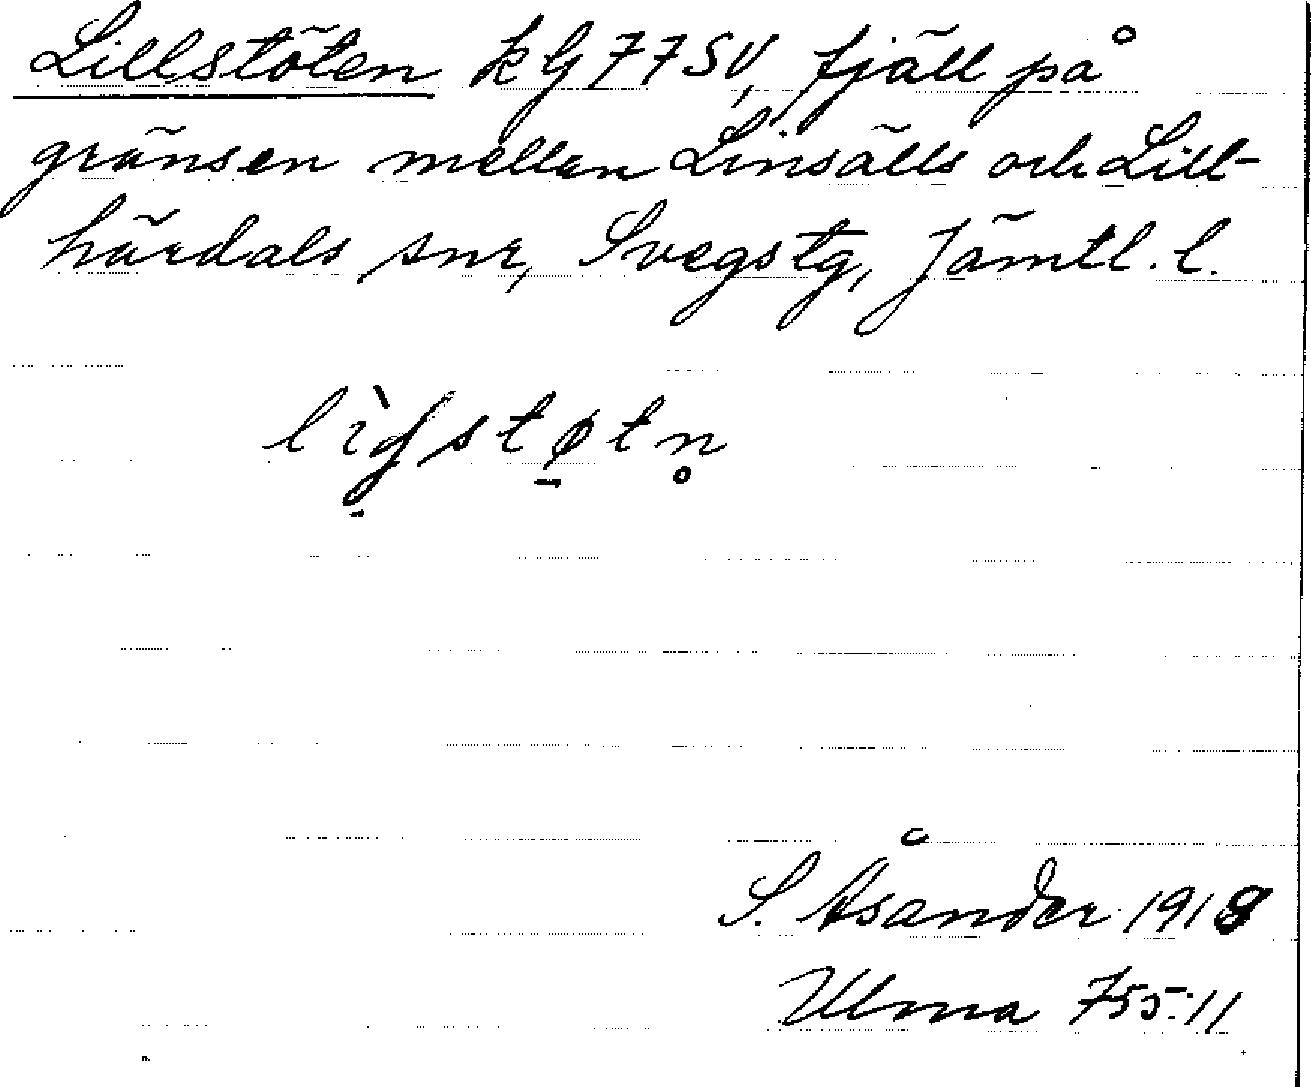 Lillstöten kG77SV, fjäll på
gränsen mellan Linsälls och Lill-
härdals snr, Svegs tg, Jämtl. l.
S. Åsander 1918
Ulma 755:11